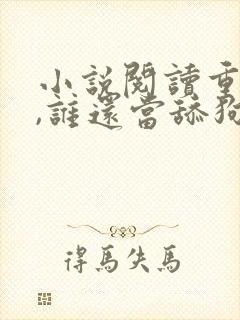 小說閱讀重
,誰還當舔狗
得馬失馬